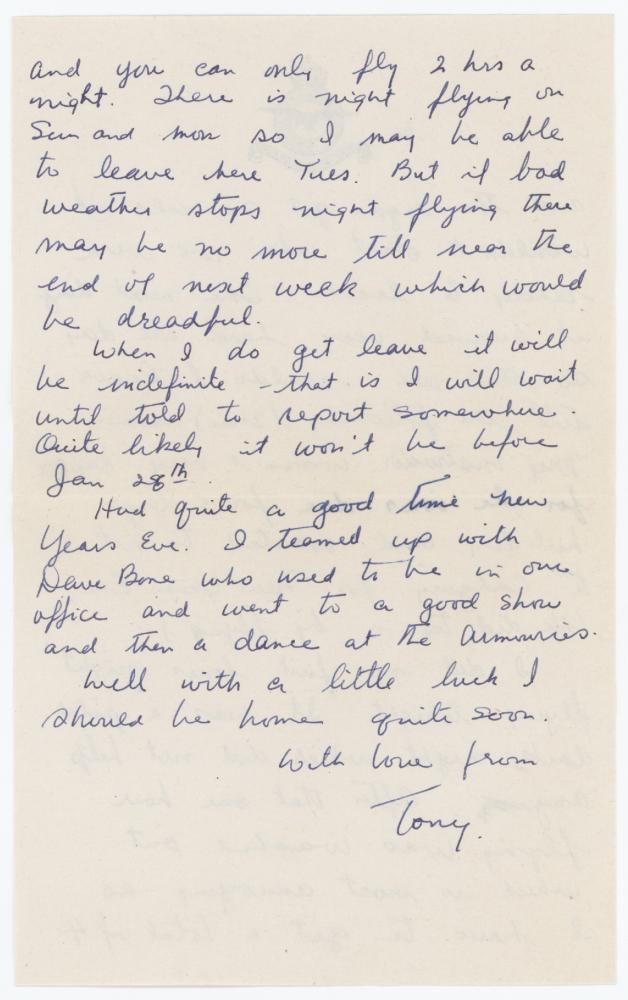 and you can only fly 2 hrs a
night. There is night flying on
Sun and Mon so I may be able
to leave here Tues. But if bad
weather stops night flying there
may be no more till near the
end of next week which would
be dreadful.
When I do get leave it will
be indefinite - that is I will wait
until told to report somewhere.
Quite likely it won't be before
Jan 28th.
Had quite a good time New
Years Eve. I teamed up with
Dave Bone who used to be in our
office and went to a good show
and then a dance at the Armouries.
Well with a little luck I
should be home quite soon.
With love from
Tony.